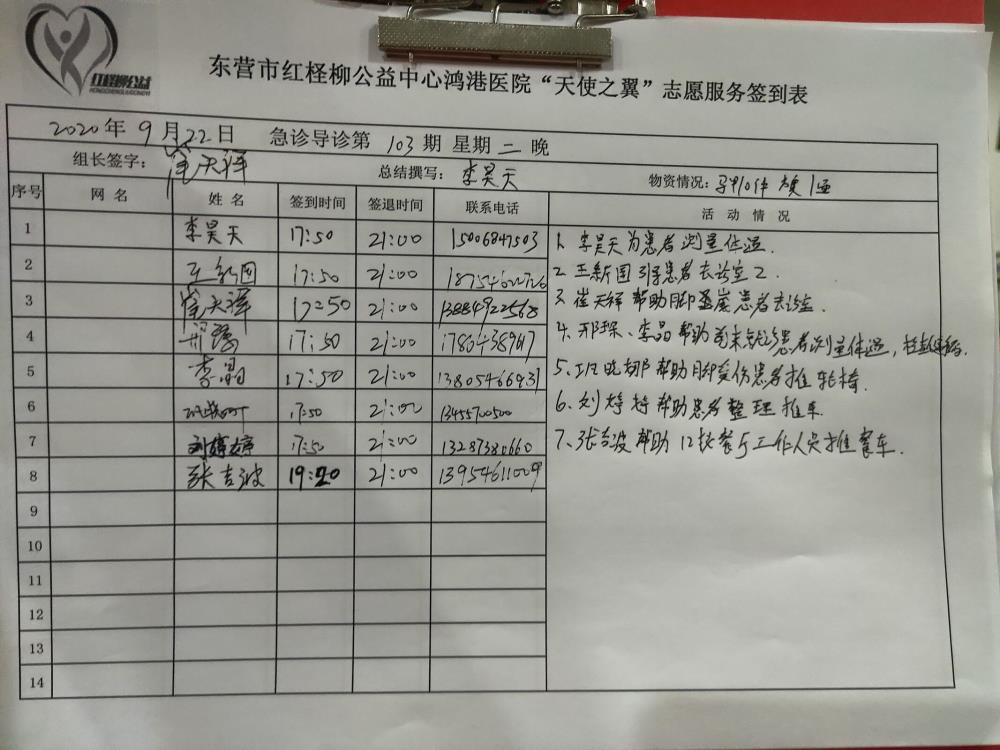 红柽柳公益
东营市红柽柳公益中心鸿港医院“天使之翼”志愿服务签到表
2020年9月22日 急诊导诊第103期 星期二晚
组长签字：崔天祥 总结撰写：李昊天 物资情况：
序号 网名 姓名 签到时间 签退时间 联系电话 活动情况
1 李昊天 17:50 21:00 15006847503
2 王新国 17:50 21:00
3 崔天祥 17:50 21:00 13884922568
4 17:50 21:00
5 李晶 17:50 21:00 13805466931
6 17:50 21:00 13455700500
7 刘婷婷 17:50 21:00 13287380660
8 张吉波 19:20 21:00 13954611009
9
10
11
12
13
14
1. 李昊天为患者测量体温.
2 王新国引导患者去诊室2.
3. 崔天祥帮助脚患者去诊室.
4. 邢琛、李晶帮助前来就诊患者测量体温，
5、晓娜帮助脚受伤患者推轮椅.
6、刘婷婷帮助患者整理推车
7、张吉波帮助12楼餐厅工作人员推餐车.